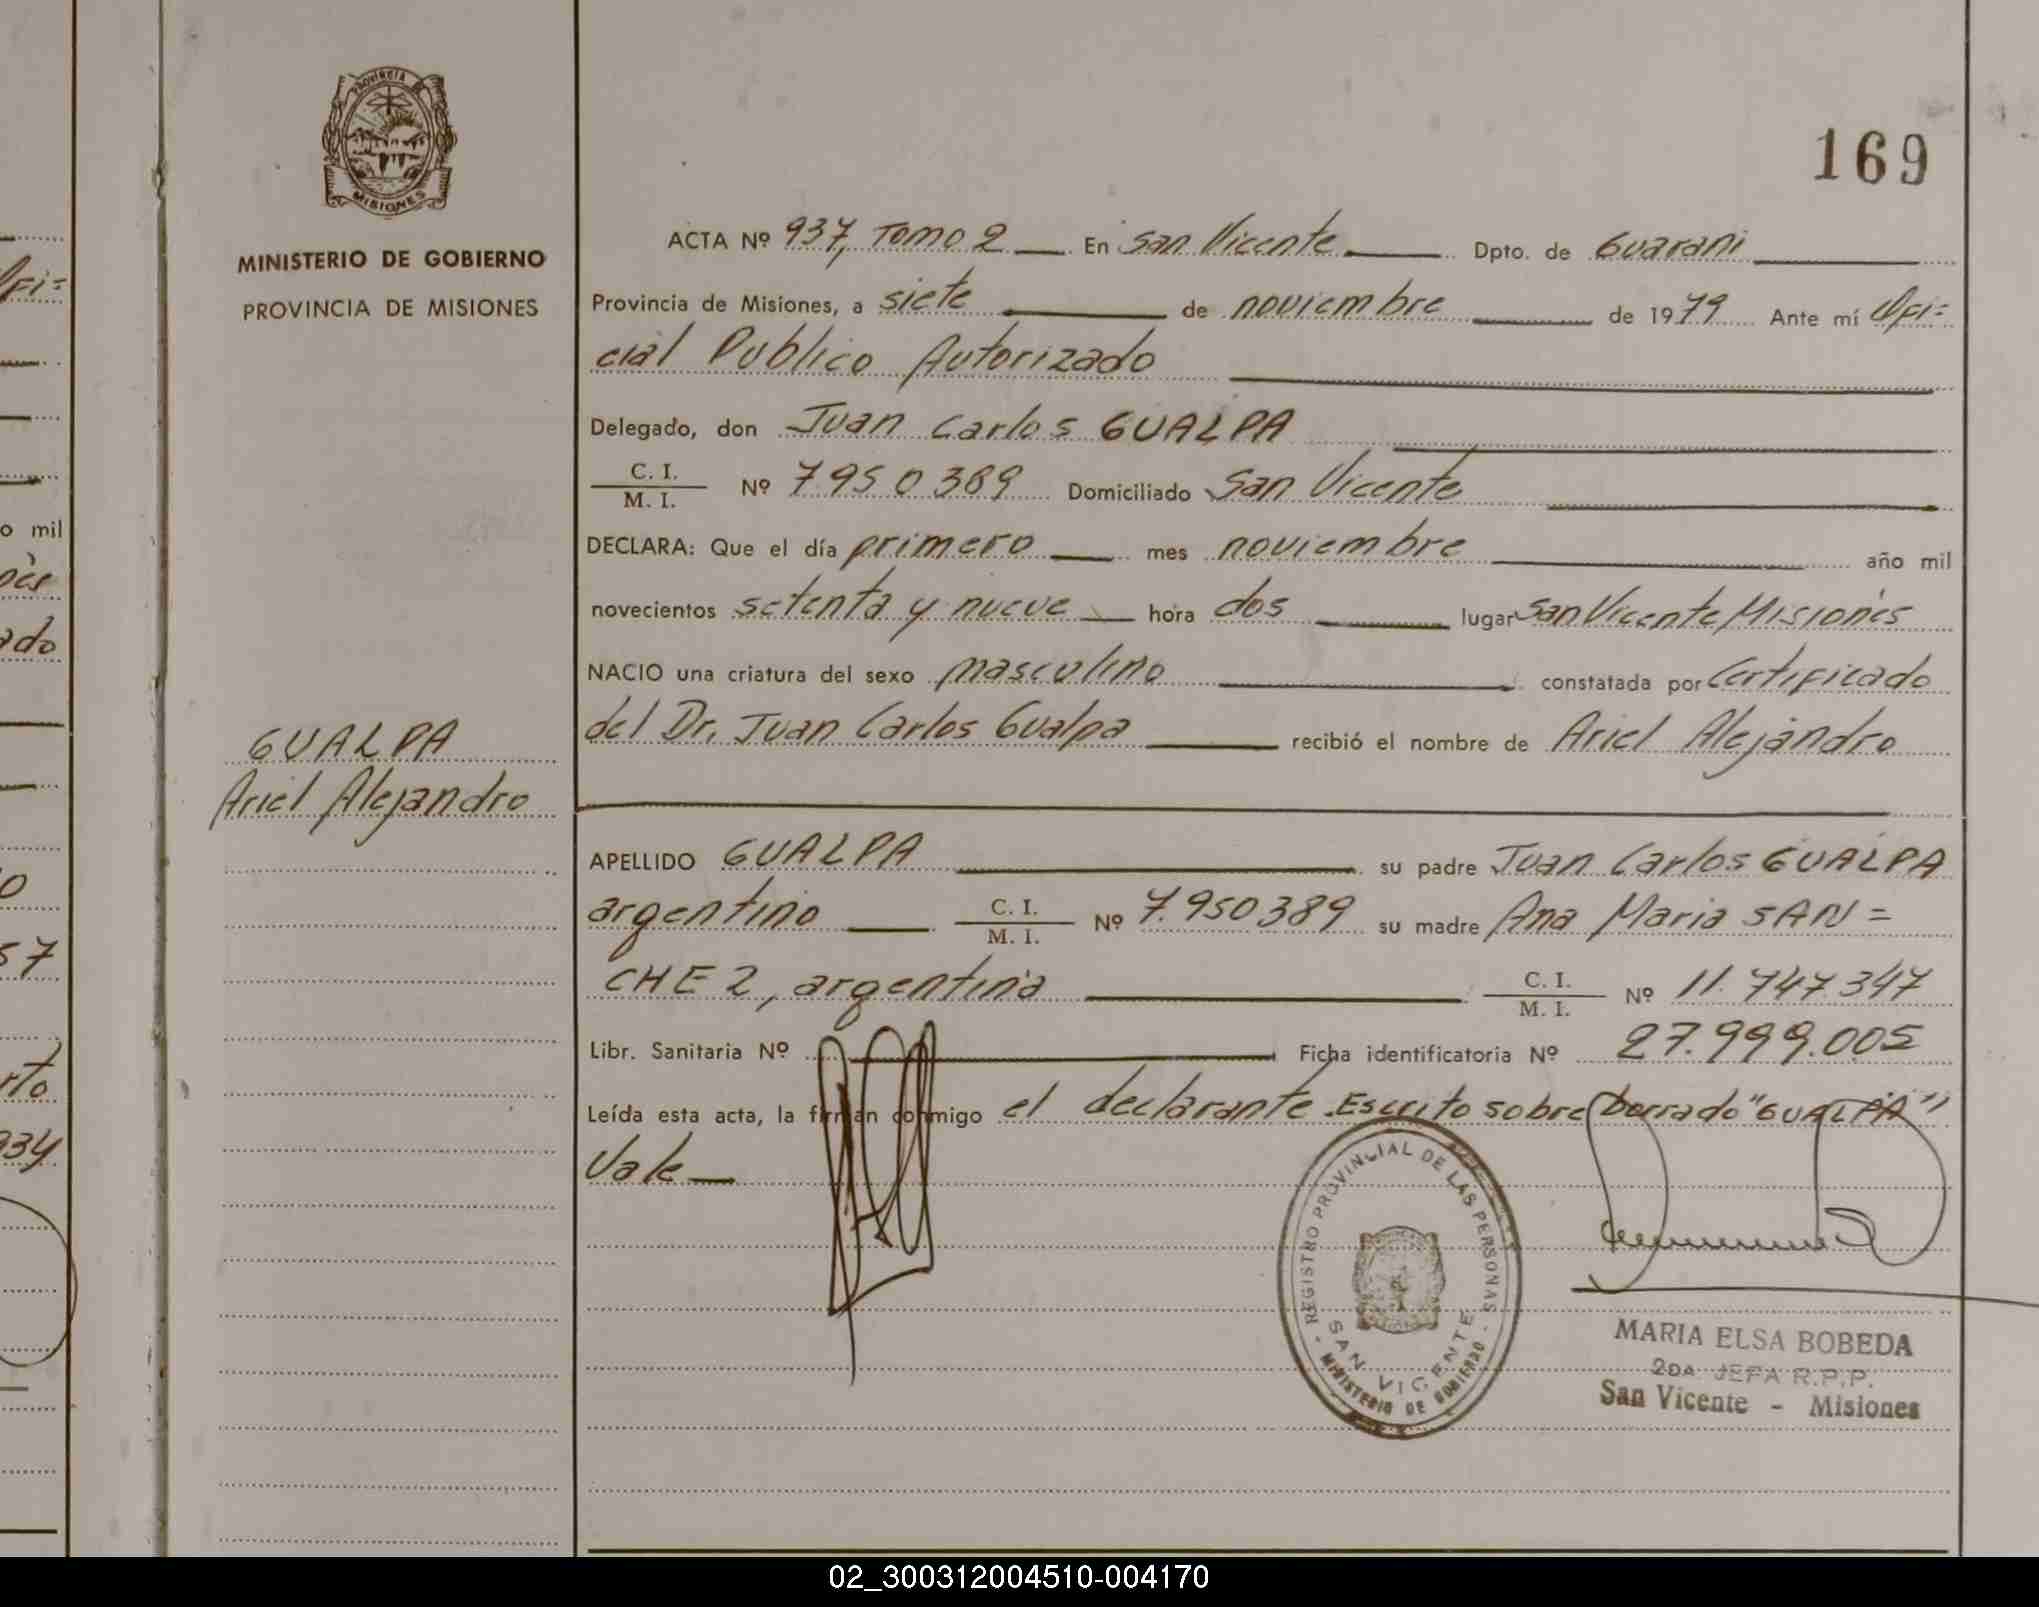 PROVINCIA
MISIONES
MINISTERIO DE GOBIERNO
PROVINCIA DE MISIONES
GUALPA
Ariel Alejandro
169
ACTA Nº 937, Tomo 2 En San Vicente Dpto. de Guarani
Provincia de Misiones, a siete de noviembre de 1979 Ante mí Ofi=
cial Publico Autorizado
Delegado, don Juan Carlos GUALPA
C. I.
M. I. Nº 7950389 Domiciliado San Vicente
DECLARA: Que el día primero mes noviembre año mil
novecientos setenta y nueve hora dos lugar San Vicente Misiones
NACIO una criatura del sexo masculino constatada por Certificado
del Dr. Juan Carlos Gualpa recibió el nombre de Ariel Alejandro
APELLIDO GUALPA su padre Juan Carlos GUALPA
argentino C. I. M. I. Nº 7.950389 su madre Ana Maria SAN=
CHEZ, argentina C. I. M. I. Nº 11.747.347
Libr. Sanitaria Nº Ficha identificatoria Nº 27.999.005
Leída esta acta, la firman conmigo el declarante. Escrito sobre borrado "GUALPA"
Vale
REGISTRO PROVINCIAL DE LAS PERSONAS
SAN VICENTE
MINISTERIO DE GOBIERNO
MARIA ELSA BOBEDA
2DA JEFA R.P.P.
San Vicente - Misiones
o mil
ado
57
934
02_300312004510-004170